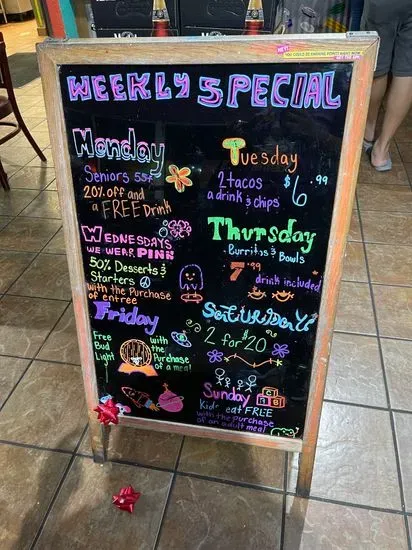 HEY!
YOU COULD BE EARNING POINTS RIGHT NOW
GET THE APP
WEEKLY SPECIAL
Monday
Seniors 55+
20% off and
a FREE Drink
Tuesday
2 tacos
a drink & chips
$6.99
WEDNESDAYS
WE WEAR PINK
50% Desserts &
Starters
with the Purchase
of entree
Thursday
Burritos &
Bowls
7.99
drink included
Friday
Free
Bud
Light
with the
Purchase
of a meal
SATURDAYS
2 for $20
SUNDAY
Kids eat FREE
with the purchase
of an adult meal
A
B C